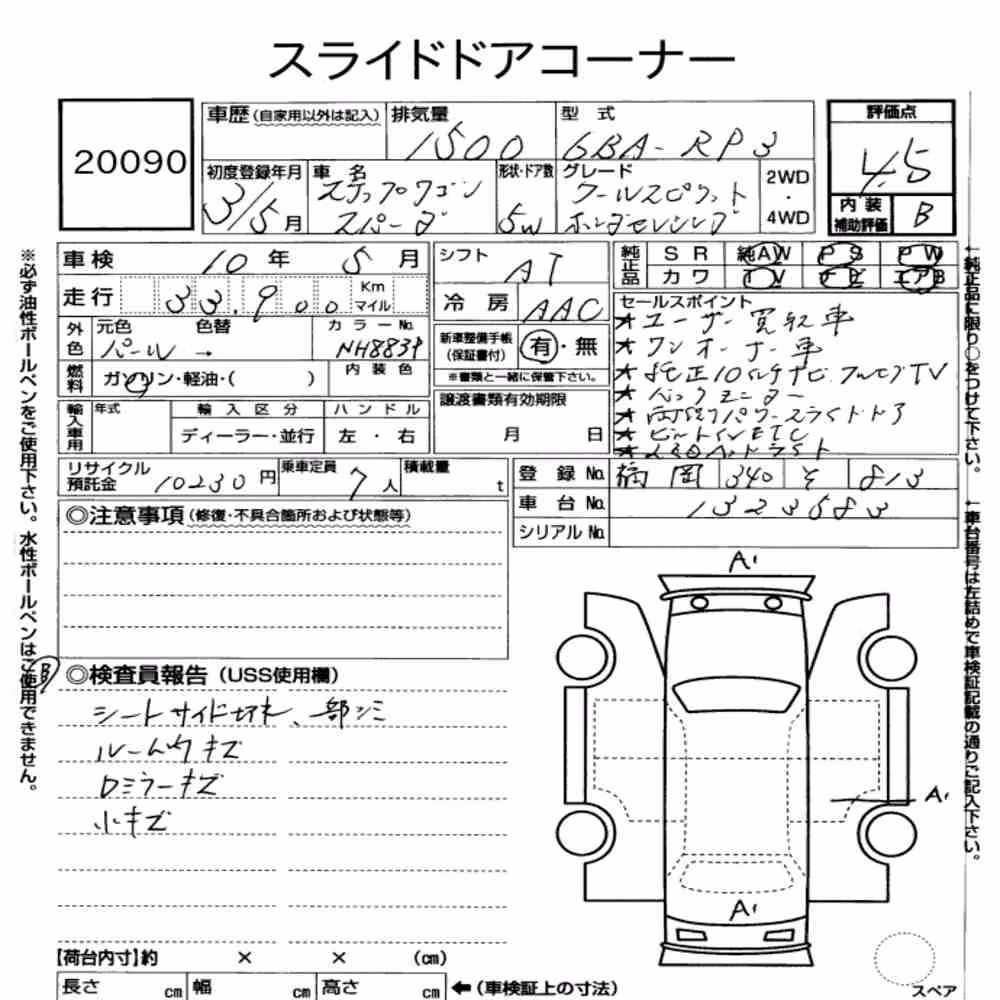 スライドドアコーナー
20090
車歴(自家用以外は記入)
排気量
1500
型 式
6BA-RP3
評価点
4.5
内装
補助評価
B
初度登録年月
3/5月
車 名
ステップワゴン
スパーダ
形状・ドア数
5W
グレード
クールスピリット
ホンダセンシング
2WD
・
4WD
車検 10年 5月
走行 33,900 Km マイル
外色
元色 色替
パール →
カラーNo.
NH883P
燃料
ガソリン・軽油・( )
内 装 色
輸入車用
年式
輸 入 区 分
ディーラー・並行
ハ ン ド ル
左 ・ 右
シフト AT
冷 房 AAC
新車整備手帳
(保証書付)
有・無
※書類と一緒に保管下さい。
譲渡書類有効期限
月 日
純正品
S R 純AW P S P W
カ ワ T V ナビ エアB
セールスポイント
★ユーザー買取車
★ワンオーナー車
★純正10インチナビ フルセグTV
★バックモニター
★両側パワースライドドア
★ビルトインETC
★LEDヘッドライト
リサイクル
預託金 10230円
乗車定員 7人
積載量 t
登 録 No. 福岡 340 そ 813
車 台 No. 1323583
シリアル No.
◎注意事項(修復・不具合箇所および状態等)
◎検査員報告(USS使用欄)
B
シートサイド切れ、部シミ
ルーム内キズ
Dミラーキズ
小キズ
A1
A1
A1
【荷台内寸】約 × × (cm)
長さ cm 幅 cm 高さ cm
←(車検証上の寸法)
スペア
※必ず油性ボールペンをご使用下さい。水性ボールペンはご使用できません。
↑純正品に限り○をつけて下さい。
↑車台番号は左詰めで車検証記載の通りご記入下さい。